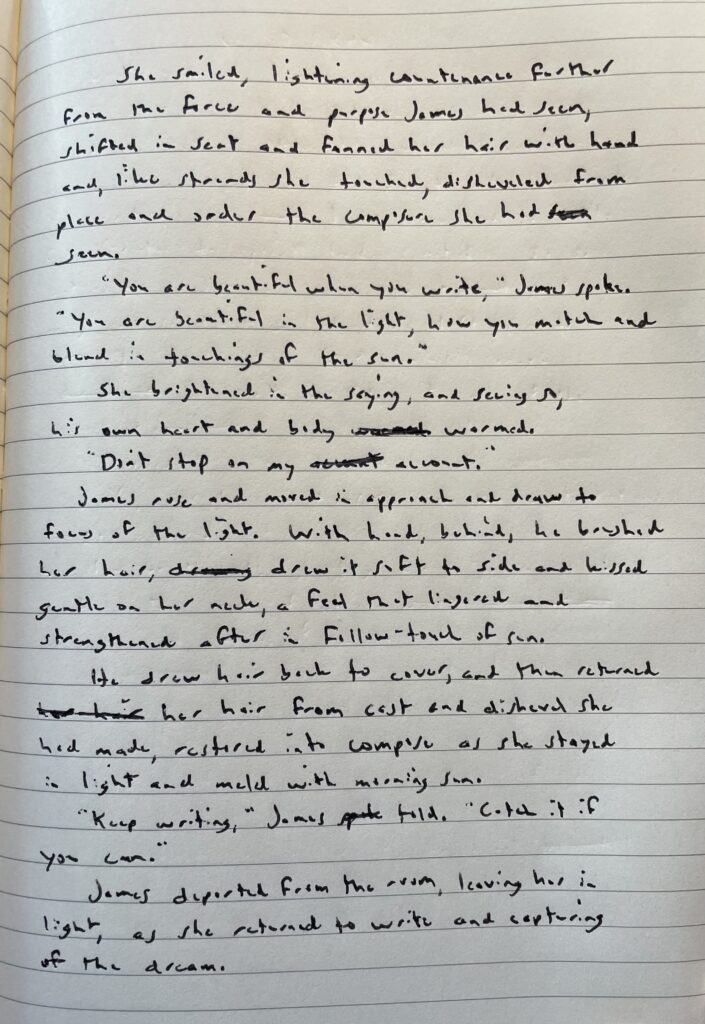 She smiled, lightening countenance further
from the force and purpose James had seen,
shifted in seat and fanned her hair with hand
and, like strands she touched, disheveled from
place and order the composure she had seen
seen.
"You are beautiful when you write," James spoke.
"You are beautiful in the light, how you match and
blend in touchings of the sun."
She brightened in the saying, and seeing so,
his own heart and body warmed.
"Don't stop on my account account."
James rose and moved in approach and draw to
focus of the light. With hand, behind, he brushed
her hair, drawing drew it soft to side and kissed
gentle on her neck, a feel that lingered and
strengthened after in follow-touch of sun.
He drew hair back to cover, and then returned
her hair her hair from cast and dishevel she
had made, restored into compose as she stayed
in light and meld with morning sun.
"Keep writing," James spoke told. "Catch it if
you can."
James departed from the room, leaving her in
light, as she returned to write and capturing
of the dream.